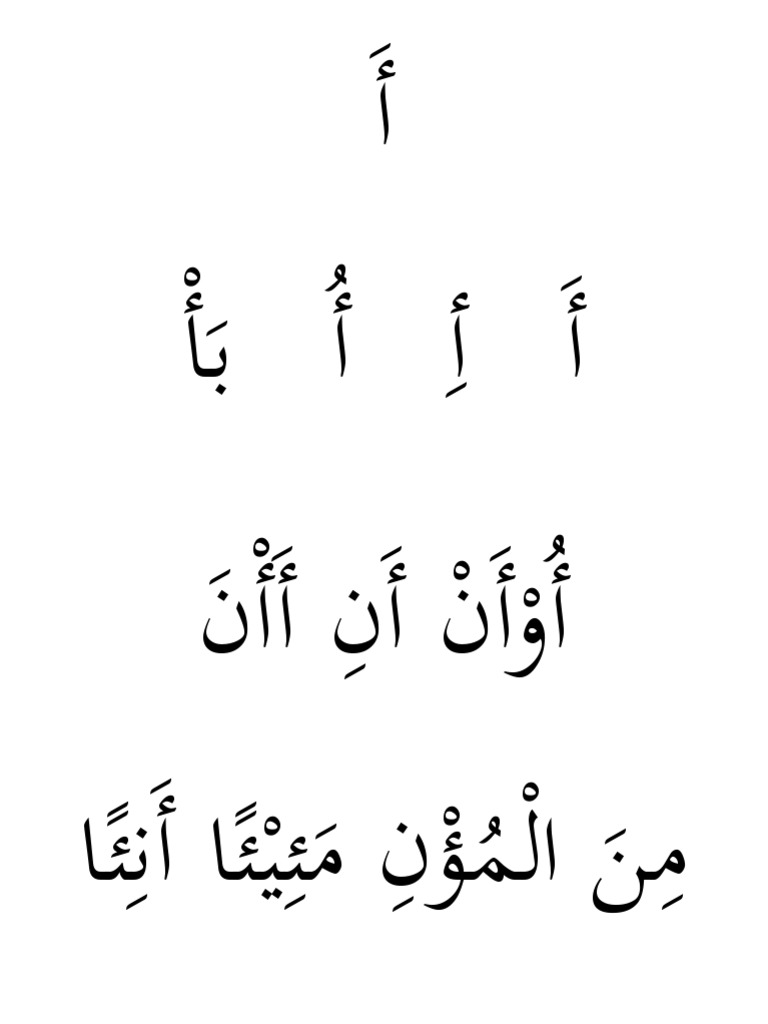 أَ
أَ أِ أُ بَأْ
أُوْأَنْ أَنِ أَأْنَ
مِنَ الْمُؤْنِ مَئِيْئًا أَنِئًا